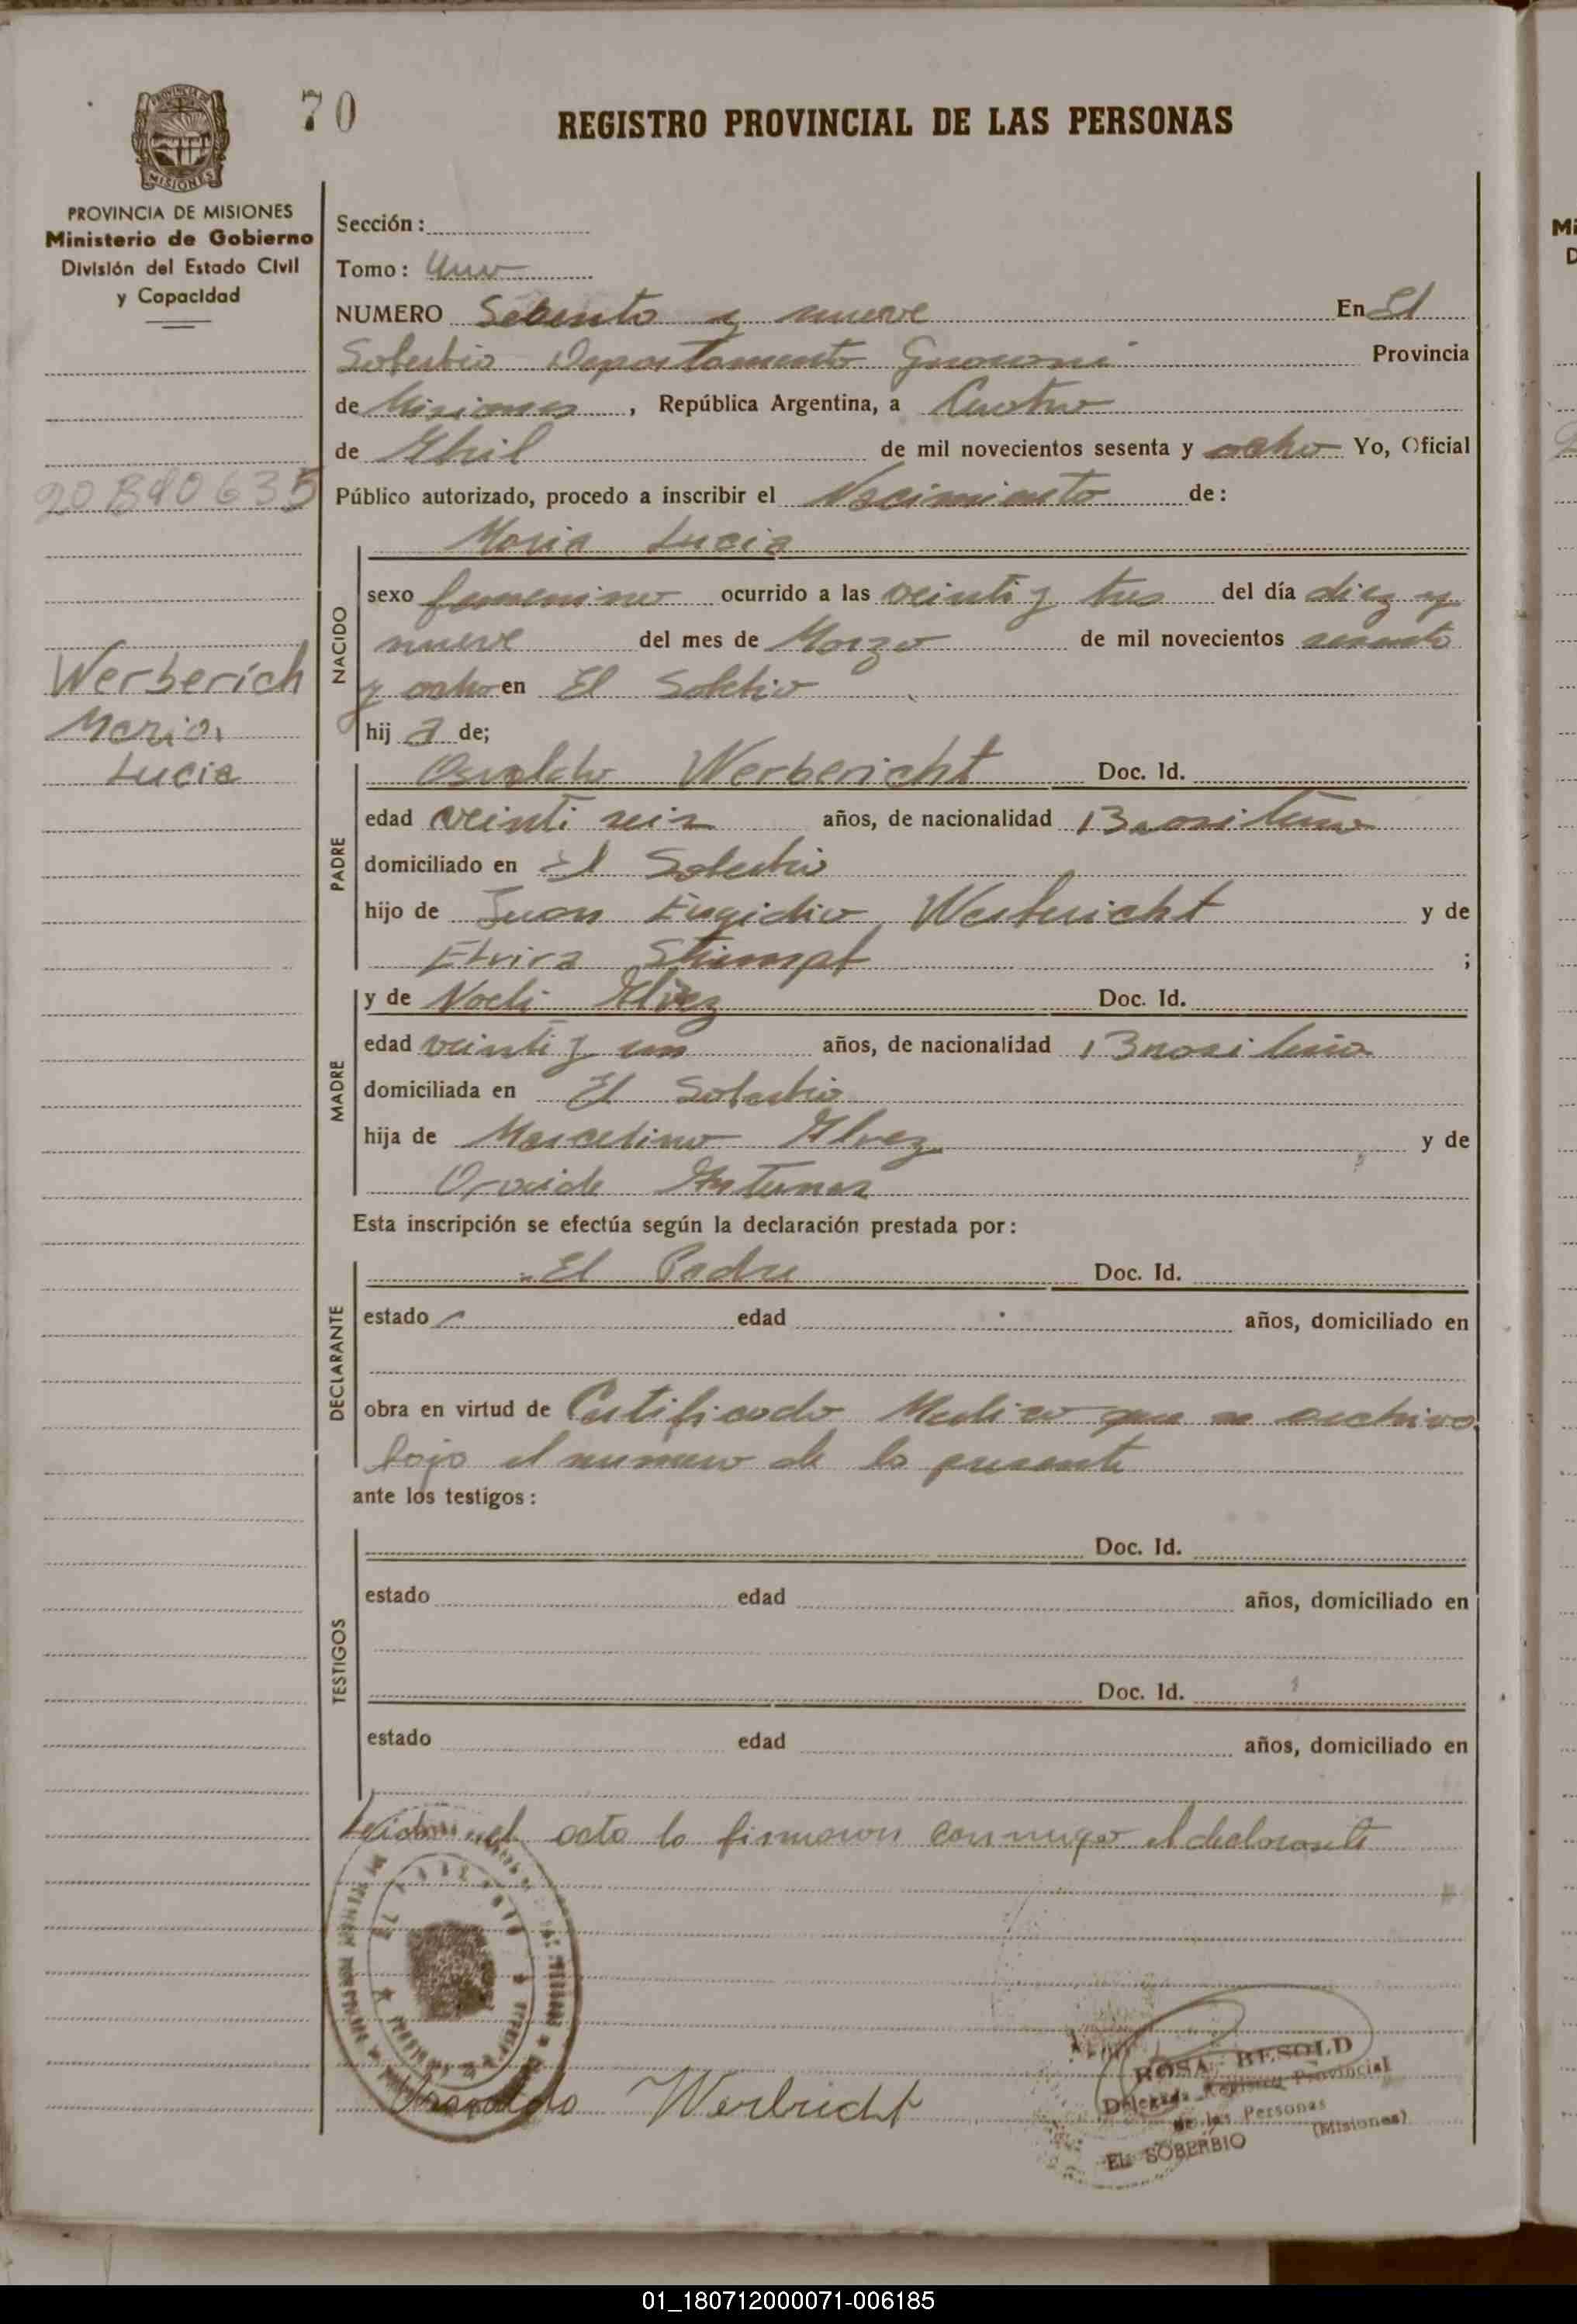 70
REGISTRO PROVINCIAL DE LAS PERSONAS
PROVINCIA DE MISIONES
Ministerio de Gobierno
División del Estado Civil
y Capacidad
MISIONES
Sección:
Tomo: Uno
NUMERO Setenta y nueve En El
Soberbio Departamento Guarani Provincia
de Misiones, República Argentina, a Cuatro
de Abril de mil novecientos sesenta y ocho Yo, Oficial
Público autorizado, procedo a inscribir el Nacimiento de:
Maria Lucia
NACIDO
sexo femenino ocurrido a las veinti y tres del día diez y
nueve del mes de Marzo de mil novecientos sesenta
y ocho en El Soberbio
hija de;
Werberich
Maria
Lucia
PADRE
Osvaldo Werbericht Doc. Id.
edad veinti seis años, de nacionalidad Brasileño
domiciliado en El Soberbio
hijo de Juan Werbericht y de
Elvira Stumpf ;
MADRE
y de Noeli Alvez Doc. Id.
edad veinti y un años, de nacionalidad Brasileña
domiciliada en El Soberbio
hija de Marcelino Alvez y de
Antunez
Esta inscripción se efectúa según la declaración prestada por:
DECLARANTE
El Padre Doc. Id.
estado edad años, domiciliado en
obra en virtud de Certificado Medico que se archiva
bajo el numero de la presente
ante los testigos:
TESTIGOS
Doc. Id.
estado edad años, domiciliado en
Doc. Id.
estado edad años, domiciliado en
Leida el acta la firmaron conmigo el declarante
Werbricht
ROSA BESOLD
Delegada Registro Provincial
de las Personas
EL SOBERBIO (Misiones)
01_180712000071-006185